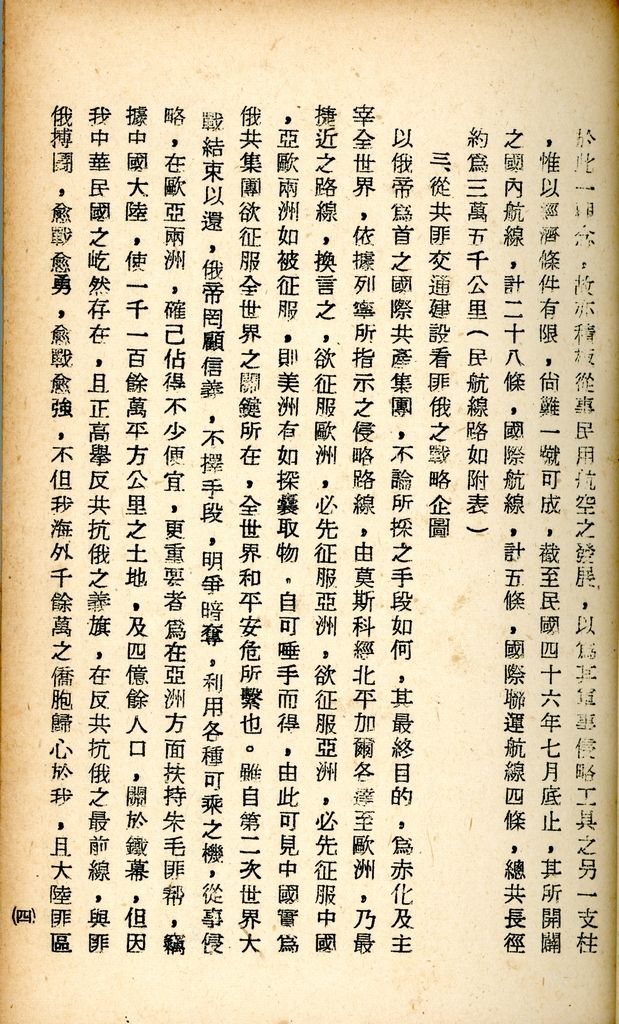 於此一理念,故亦積极從事民用航空之發展,以爲其軍事侵略工具之另一支柱
,惟以經濟條件有限,尙難一蹴可成,截至民國四十六年七月底止,其所開闢
之國內航線,計二十八條,國際航線,計五條,國際聯運航線四條,總共長徑
約爲三萬五千公里(民航線路如附表)
三、從共匪交通建設看匪俄之戰略企圖
以俄帝爲首之國際共產集團,不論所採之手段如何,其最終目的,爲赤化及主
宰全世界,依據列寧所指示之侵略路線,由莫斯科經北平加爾各達至歐洲,乃最
捷近之路線,換言之,欲征服歐洲,必先征服亞洲,欲征服亞洲,必先征服中國
,亞歐兩洲如被征服,則美洲有如探囊取物。自可唾手而得,由此可見中國實爲
俄共集團欲征服全世界之關鍵所在,全世界和平安危所繫也。雖自第二次世界大
戰結束以還,俄帝罔顧信義,不擇手段,明爭暗奪,利用各種可乘之機,從事侵
略,在歐亞兩洲,確已佔得不少便宜,更重要者爲在亞洲方面扶持朱毛匪幫,竊
據中國大陸,使一千一百餘萬平方公里之土地,及四億餘人口,關於鐵幕,但因
我中華民國之屹然存在,且正高舉反共抗俄之義旗,在反共抗俄之最前線,與匪
俄搏鬪,愈戰愈勇,愈戰愈強,不但我海外千餘萬之僑胞歸心於我,且大陸匪區
(四)